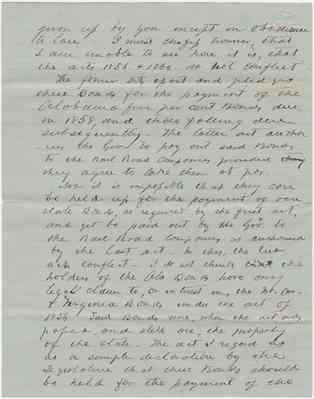 given up by you except in obedience
to law. I must confess however, that
I am unable to see how it is, that
the acts 1858 & 1860. do not conflict
The former sets apart and pledges
these Bonds for the payment of the
Alabama five per cent Bonds due
in 1858, and those falling due
subsequently. The latter act author
izes the Gov. to pay out said Bonds
to the Rail Road Companies provided
they agree to take them at par.
Now it is impossible that they can
be held up for the payment of our
state Bonds, as required by the first act,
and yet be paid out by the Gov. to
the Rail Road Companies, as authorized
by the last act. In this, the two
acts conflict. I do not think that the
holders of the Ala Bonds have any
legal claim to, or interest in, the
& Virginia Bonds under the act of
1858. Said Bonds were, when the act was
passed and still are, the property
of the state. The act I regard
as a simple declaration by the
Legislature that these Bonds should
be held for the payment of the